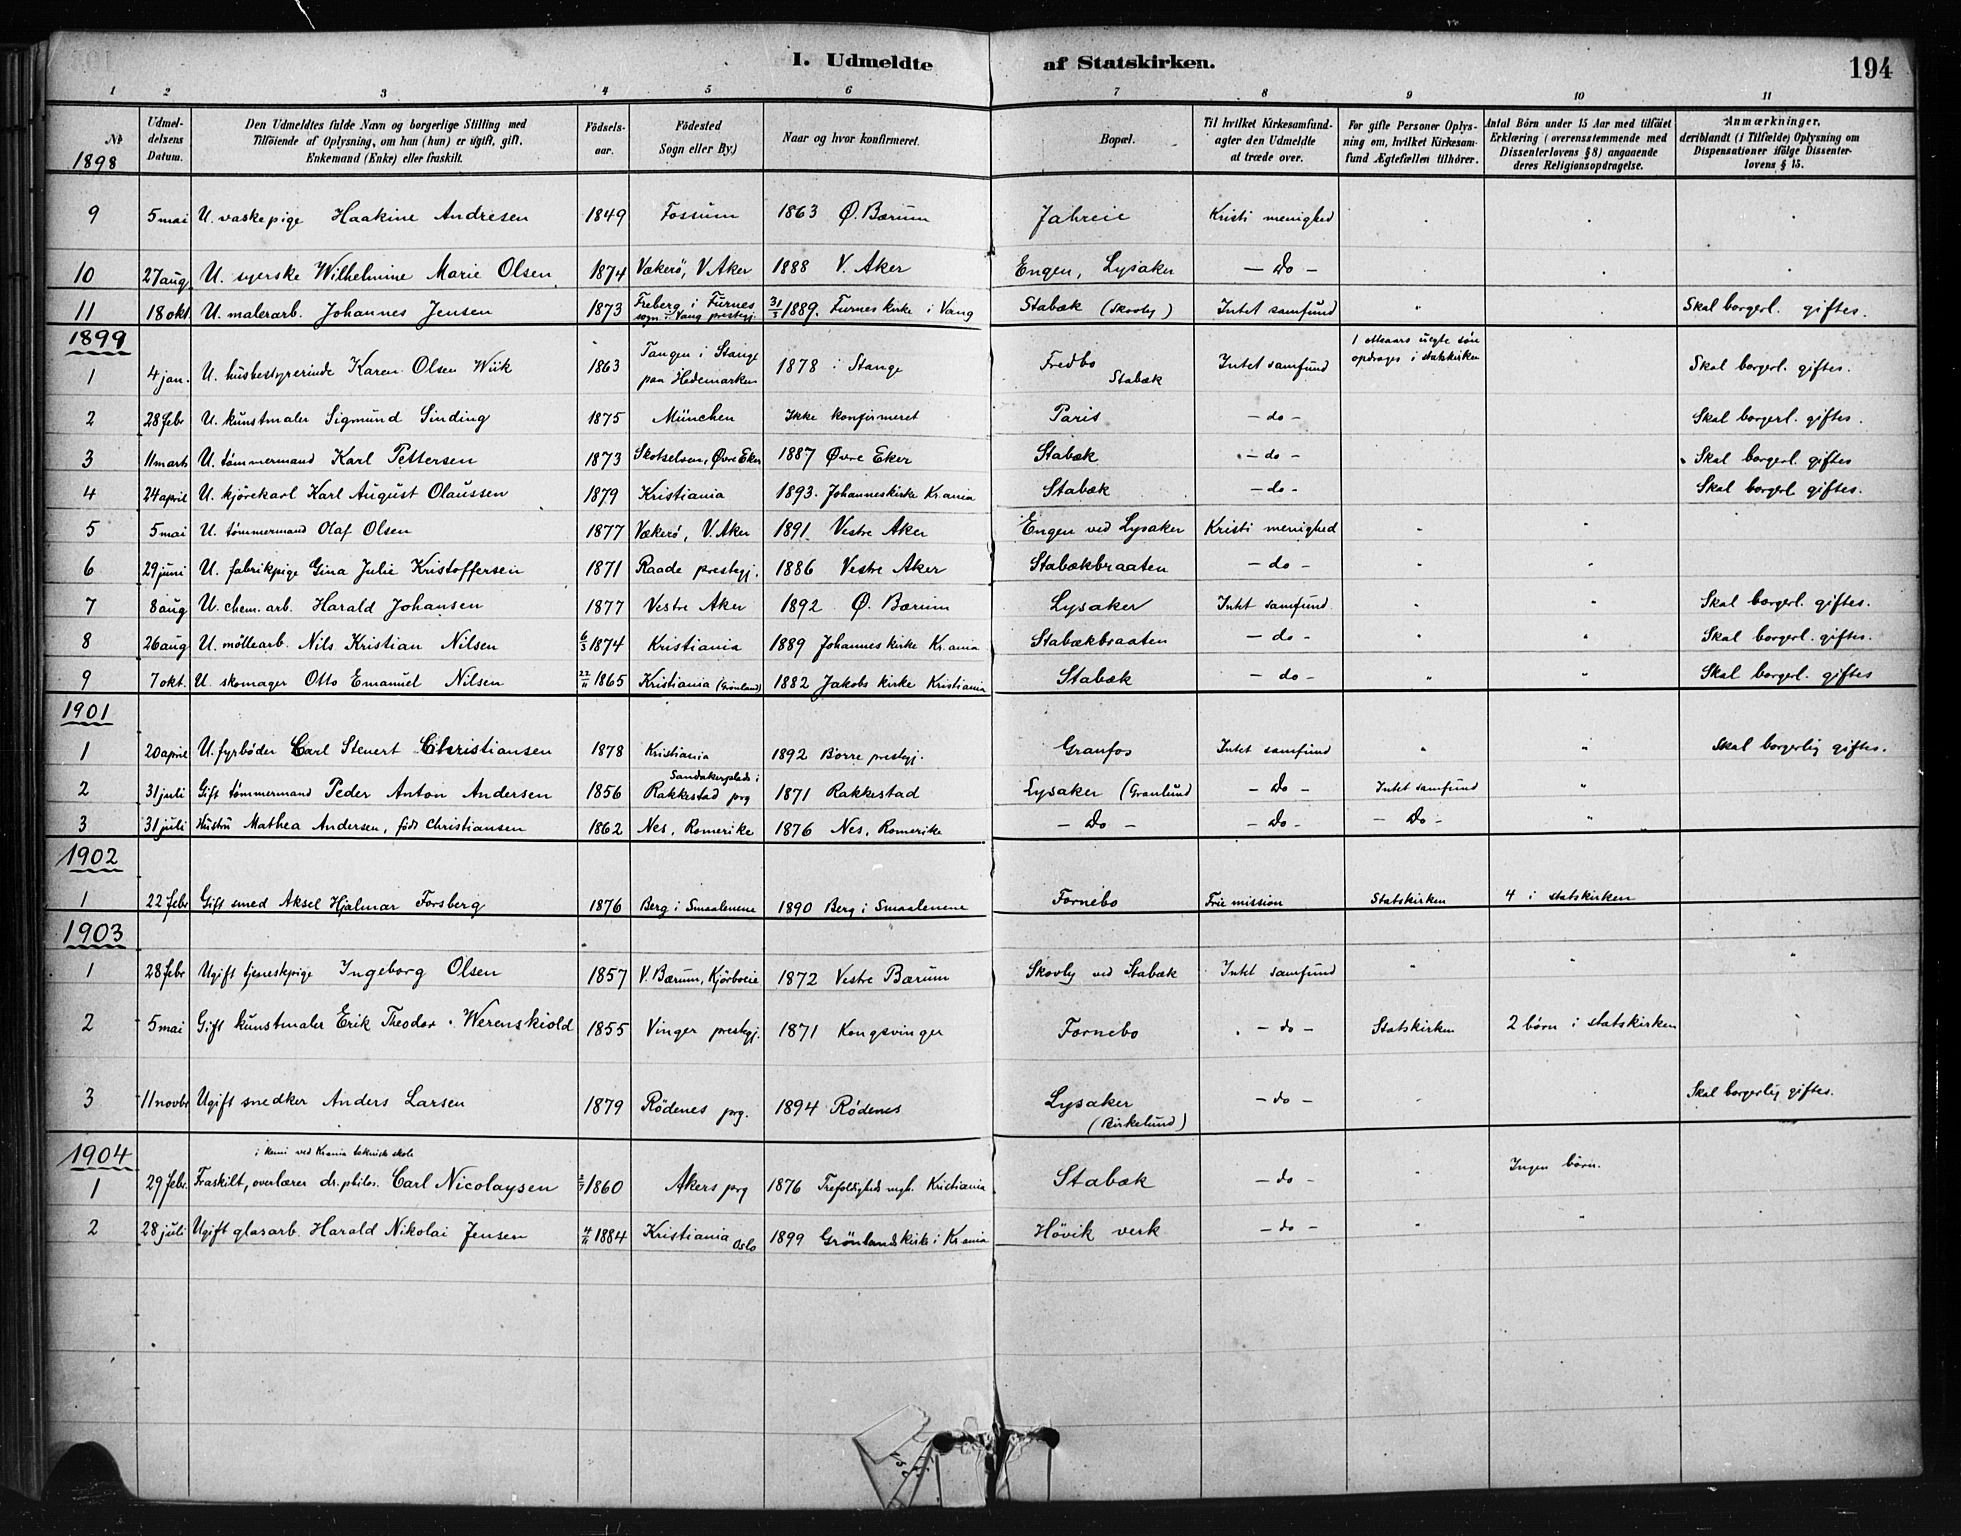 I. Udmeldte af Statskirken. 194
1 2 3 4 5 6 7 8 9 10 11
№ 1898 | Udmeldelsens Datum. | Den Udmeldtes fulde Navn og borgerlige Stilling med Tilføiende af Oplysning, om han (hun) er ugift, gift, Enkemand (Enke) eller fraskilt. | Fødselsaar. | Fødested Sogn eller By.) | Naar og hvor konfirmeret. | Bopæl. | Til hvilket Kirkesamfund agter den Udmeldte at træde over. | For gifte Personer Oplysning om, hvilket Kirkesamfund Ægtefællen tilhører. | Antal Børn under 15 Aar med tilføiet Erklæring (overensstemmende med Dissenterlovens § 8) angaaende deres Religionsopdragelse. | Anmærkninger, deriblandt (i Tilfælde) Oplysning om Dispensationer ifølge Dissenterlovens § 15.
9 5 mai U. vaskepige Haakine Andresen 1849 Fossum 1863 Ø. Bærum Jahreie Kristi menighed
10 27 aug U. syerske Wilhelmine Marie Olsen 1874 Vækerø, V. Aker 1888 V. Aker Engen, Lysaker - Do -
11 18 okt U. malerarb. Johannes Jensen 1873 Freberg i Furnes sogn i Vang prestegj. 31/3 1889. Furnes kirke i Vang Stabæk (Skovly) Intet samfund " Skal borgerl. giftes.
1899
1 4 jan. U. husbestyrerinde Karen Olsen Wiik 1863 Tangen i Stange paa Hedemarken 1878 i Stange Fredbo Stabæk Intet samfund 1 otteaars uegte søn opdrages i statskirken Skal borgerl. giftes.
2 28 febr U. kunstmaler Sigmund Sinding 1875 München Ikke konfirmeret Paris - do - Skal borgerl. giftes.
3 11 marts U. tømmermand Karl Pettersen 1873 Skotselven, Øvre Eker 1887 Øvre Eker Stabæk - do - Skal borgerl. giftes
4 24 april U. kjørekarl Karl August Olaussen 1879 Kristiania 1893. Johanneskirke Kr.ania Stabæk - do - Skal borgerl giftes.
5 5 mai U. tømmermand Olaf Olsen 1877 Vækerø, V. Aker 1891 Vestre Aker Engen ved Lysaker Kristi menighed " "
6 29 juni U. fabrikpige Gina Julie Kristoffersen 1871 Raade prestegj. 1886 Vestre Aker Stabækbraaten - do - " "
7 8 aug U. chem. arb. Harald Johansen 1877 Vestre Aker 1892 Ø. Bærum Lysaker Intet samfund " " Skal borgerl. giftes.
8 26 aug U. møllearb. Nils Kristian Nilsen 6/3 1874 Kristiania 1889 Johannes kirke Kr.ania Stabækbraaten - do - " " Skal borgerl. giftes.
9 7 okt. U. skomager Otto Emanuel Nilsen 22/11 1865 Kristiania (Grønland) 1882 Jakobs kirke Kristiania Stabæk - do - " " Skal borgerl. giftes
1901
1 20 april U. fyrbøder Carl Stenert Christiansen 1878 Kristiania 1892 Borre prestegj. Granfos Intet samfund " " Skal borgerlig giftes.
2 31 juli Gift tømmermand Peder Anton Andersen 1856 Sandakerplads i Rakkestad prg 1871 Rakkestad Lysaker (Granlund - Do - Intet samfund "
3 31 juli Hustru Mathea Andersen, født Christiansen 1862 Nes, Romerike 1876 Nes, Romerike - Do - - Do - - Do - "
1902
1 22 febr Gift smed Aksel Hjalmar Forsberg 1876 Berg i Smaalenene 1890 Berg i Smaalenene Fornebo Frie mission Statskirken 4 i statskirken
1903
1 28 febr Ugift tjenestpige Ingeborg Olsen 1857 V. Bærum, Kjørboeie 1872 Vestre Bærum Skovly ved Stabæk Intet samfund " " "
2 5 mai Gift kunstmaler Erik Theodor Werenskiold 1855 Vinger prestegj. 1871 Kongsvinger Fornebo - do - Statskirken 2 børn i statskirken
3 11 novbr Ugift snedker Anders Larsen 1879 Rødenes prg. 1894 Rødenes Lysaker (Birkelund) - do - Skal borgerlig giftes.
1904
1 29 febr. Fraskilt, overlærer i kemi ved Krania tekniske skole dr. philos. Carl Nicolaysen 2/7 1860 Akers prg 1876 Trefoldigheds mgh. Kristiania Stabæk - do - " Ingen børn.
2 28 juli Ugift glasarb. Harald Nikolai Jensen 4/11 1884 Kristiania Oslo 1899 Grønlands kirke i Kr.ania Høvik verk - do - " "